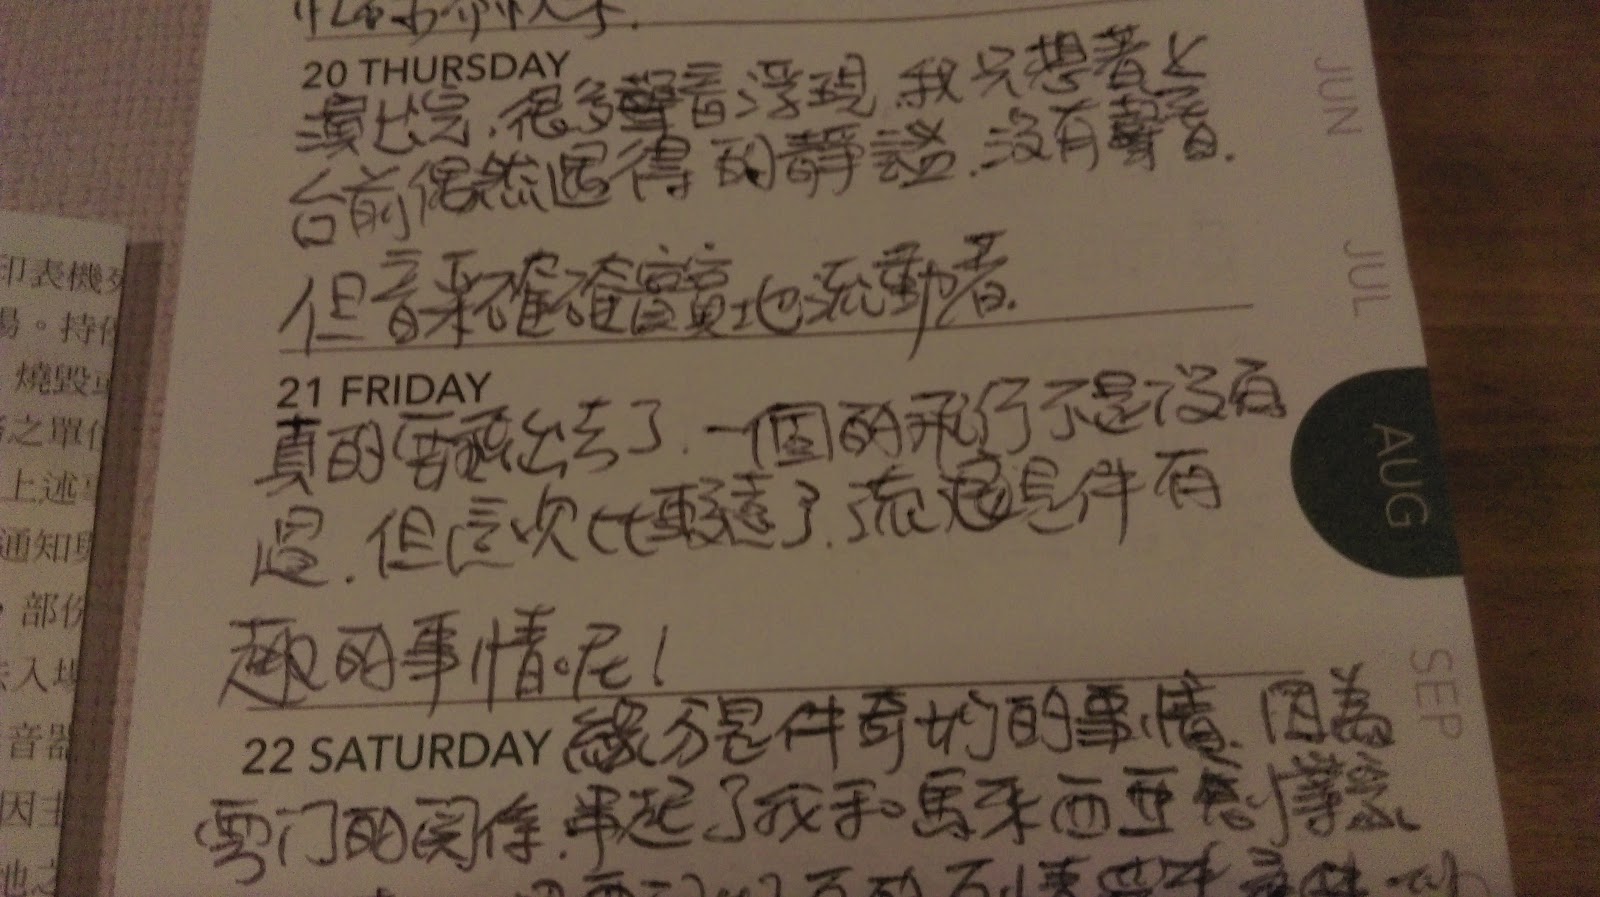 20 THURSDAY
演出完.很多聲音浮現.我只想著上
台前偶然遇得的靜謐.沒有聲音.
但音樂確確實實地流動著.
21 FRIDAY
真的要飛出去了.一個的飛行不是沒有
過.但這次比較遠了.流浪是件有
趣的事情呢!
22 SATURDAY 緣分是件奇妙的事情.因為
雲門的關係.串起了我和馬來西亞
JUN
JUL
AUG
SEP
印表機
場。持
燒毀
之單位
上述
通知
部份
入場
音器
因主
地之